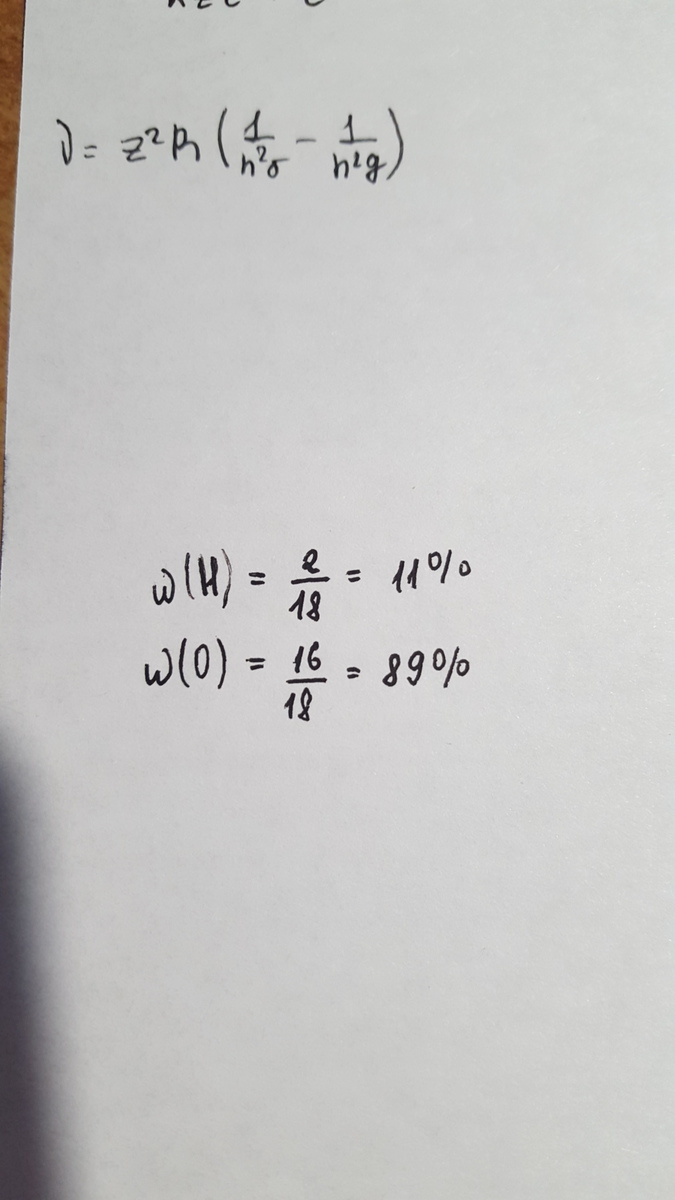 ν = z²R (1/n²б − 1/n²g)
ω(H) = 2/18 = 11%
ω(O) = 16/18 = 89%